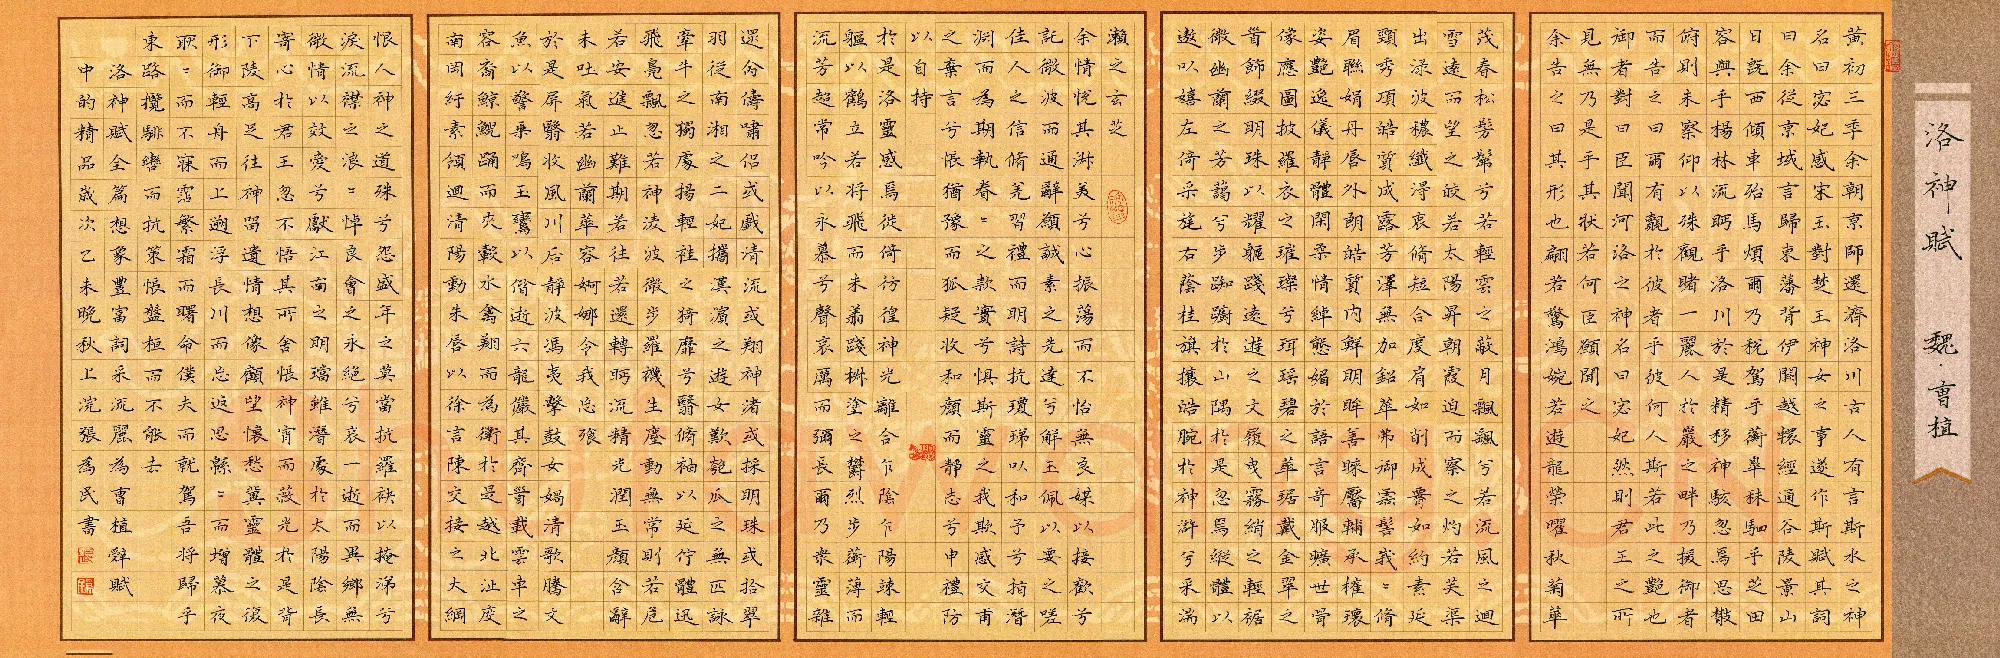 洛神賦　魏·曹植
黃初三年余朝京師還濟洛川古人有言斯水之神
名曰宓妃感宋玉對楚王神女之事遂作斯賦其詞
曰余從京域言歸東藩背伊闕越轘經通谷陵景山
日既西傾車殆馬煩爾乃稅駕乎蘅皋秣駟乎芝田
容與乎楊林流眄乎洛川於是精移神駭忽焉思散
俯則未察仰以殊觀睹一麗人於巖之畔乃援御者
而告之曰爾有覿於彼者乎彼何人斯若此之艷也
御者對曰臣聞河洛之神名曰宓妃然則君王之所
見無乃是乎其狀若何臣願聞之
余告之曰其形也翩若驚鴻婉若遊龍榮曜秋菊華
茂春松髣髴兮若輕雲之蔽月飄飄兮若流風之迴
雪遠而望之皎若太陽昇朝霞迫而察之灼若芙渠
出淥波穠纖得衷脩短合度肩如削成腰如約素延
頸秀項皓質成露芳澤無加鉛華弗御雲髻峩〻脩
眉聯娟丹唇外朗皓質內鮮明眸善睞靨輔承權瓌
姿艷逸儀靜體閑柔情綽態媚於語言奇服曠世骨
像應圖披羅衣之璀璨兮珥瑤碧之華琚戴金翠之
首飾綴明珠以耀軀踐遠遊之文履曳霧綃之輕裾
微幽蘭之芳藹兮步踟躕於山隅於是忽焉縱體以
遨以嬉左倚采旄右蔭桂旗攘皓腕於神滸兮采湍
瀨之玄芝
余情悅其淑美兮心振蕩而不怡無良媒以接歡兮
託微波而通辭願誠素之先達兮解玉佩以要之嗟
佳人之信脩羌習禮而明詩抗瓊珶以和予兮指潛
淵而為期執眷〻之款實兮懼斯靈之我欺感交甫
之棄言兮悵猶豫而狐疑收和顏而靜志兮申禮防
以自持
於是洛靈感焉徙倚彷徨神光離合乍陰乍陽竦輕
軀以鶴立若將飛而未翔踐椒塗之鬱烈步蘅薄而
流芳超常吟以永慕兮聲哀厲而彌長爾乃衆靈雜
遝命儔嘯侶或戲清流或翔神渚或採明珠或拾翠
羽從南湘之二妃攜漢濱之遊女歎匏瓜之無匹詠
牽牛之獨處揚輕袿之猗靡兮翳脩袖以延佇體迅
飛鳧飄忽若神淩波微步羅襪生塵動無常則若危
若安進止難期若往若還轉眄流精光潤玉顏含辭
未吐氣若幽蘭華容婀娜令我忘飡
於是屏翳收風川后靜波馮夷擊鼓女媧清歌騰文
魚以警乘鳴玉鸞以偕逝六龍儼其齊首載雲車之
容裔鯨鯢踊而夾轂水禽翔而為衛於是越北沚度
南岡紆素領迴清陽動朱唇以徐言陳交接之大綱
恨人神之道殊兮怨盛年之莫當抗羅袂以掩涕兮
淚流襟之浪〻悼良會之永絕兮哀一逝而異鄉無
微情以效愛兮獻江南之明璫雖潛處於太陽陰長
寄心於君王忽不悟其所舍悵神宵而蔽光於是背
下陵高足往神留遺情想像顧望懷愁冀靈體之復
形御輕舟而上遡浮長川而忘返思緜〻而增慕夜
耿〻而不寐霑繁霜而曙命僕夫而就駕吾將歸乎
東路攬騑轡而抗策悵盤桓而不能去
洛神賦全篇想象豐富詞采流麗為曹植辭賦
中的精品歲次乙未晚秋上浣張為民書